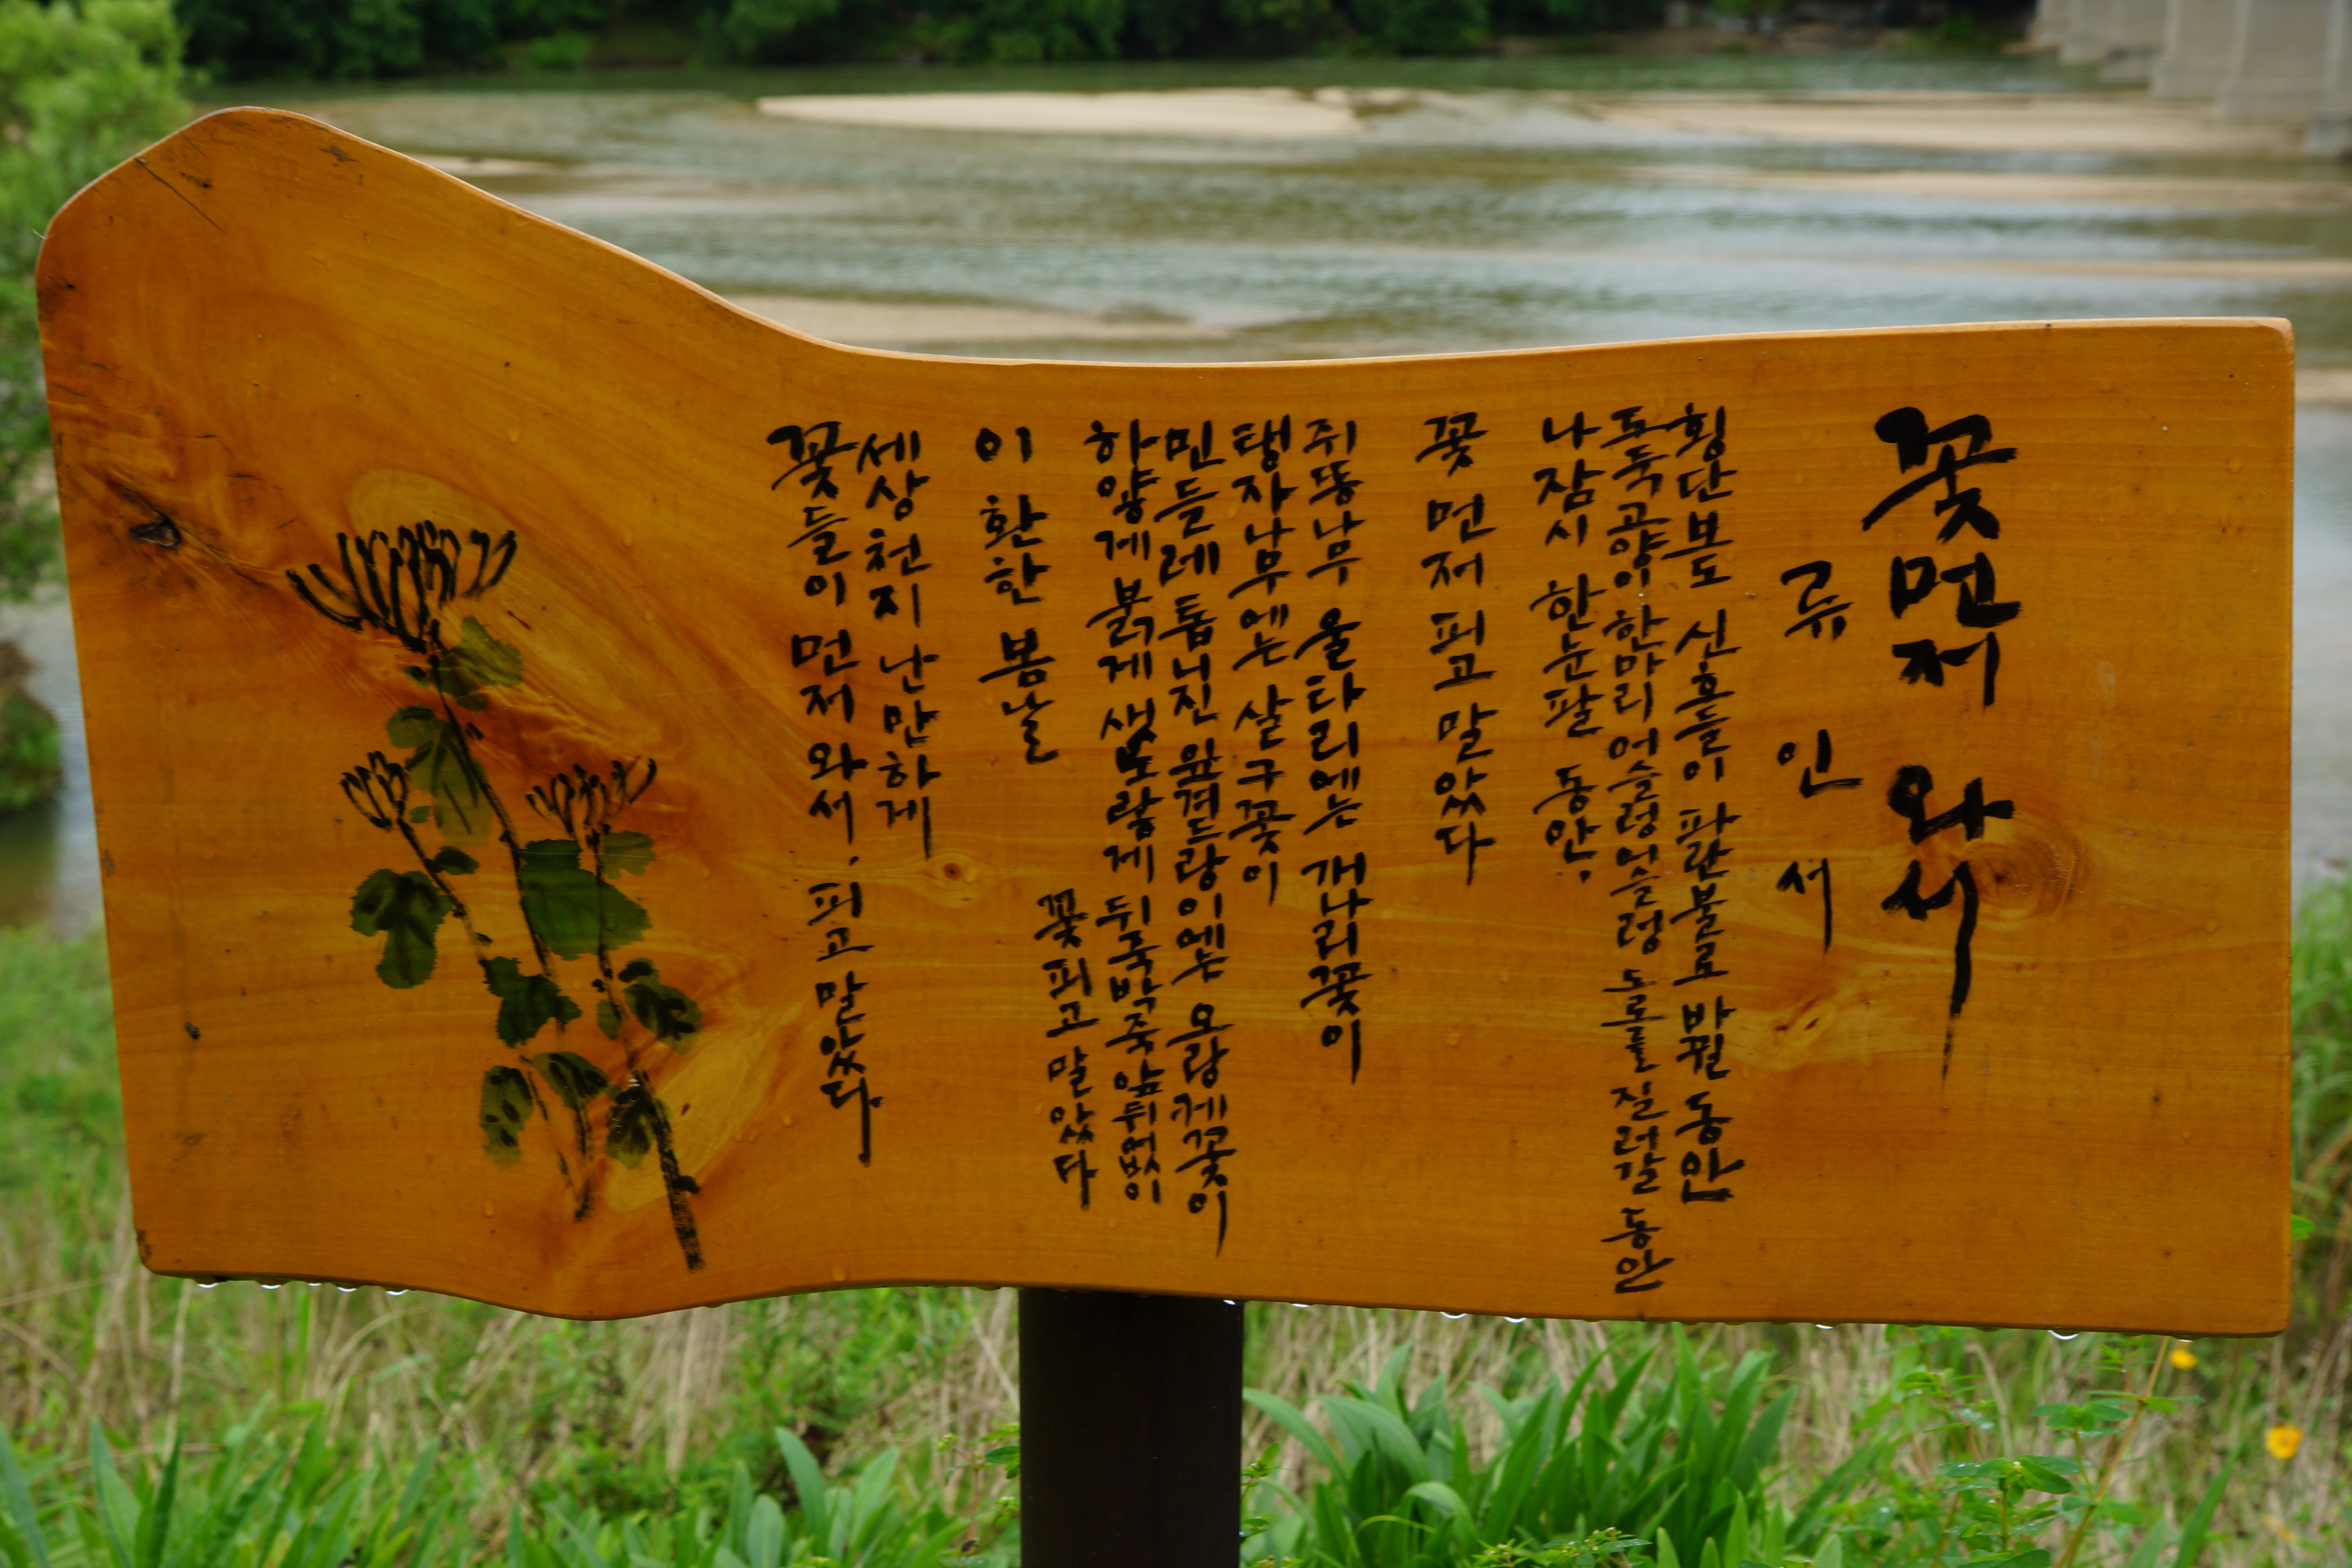 꽃 먼저 와서
류 인 서
횡단보도 신호들이 파란불로 바뀔 동안
도둑고양이 한마리 어슬렁어슬렁 도로를 질러갈 동안
나 잠시 한눈팔 동안,
꽃 먼저 피고 말았다
쥐똥나무 울타리에는 개나리꽃이
탱자나무에는 살구꽃이
민들레 톱니진 잎겨드랑이에는 오랑캐꽃이
하얗게 붉게 샛노랗게 뒤죽박죽 앞뒤없이
꽃 피고 말았다
이 환한 봄날
세상천지 난만하게
꽃들이 먼저 와서, 피고 말았다.